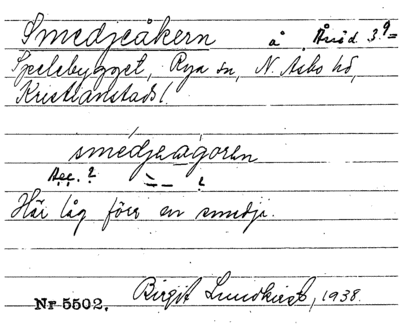 Smedjeåkern å
Spelebygget, Rya sn, N. Åsbo hd,
Kristianstads l.
smedjeagoren
Acc. 2
Här låg förr en smedja.
Nr 5502. Birgit Lundkvist, 1938.